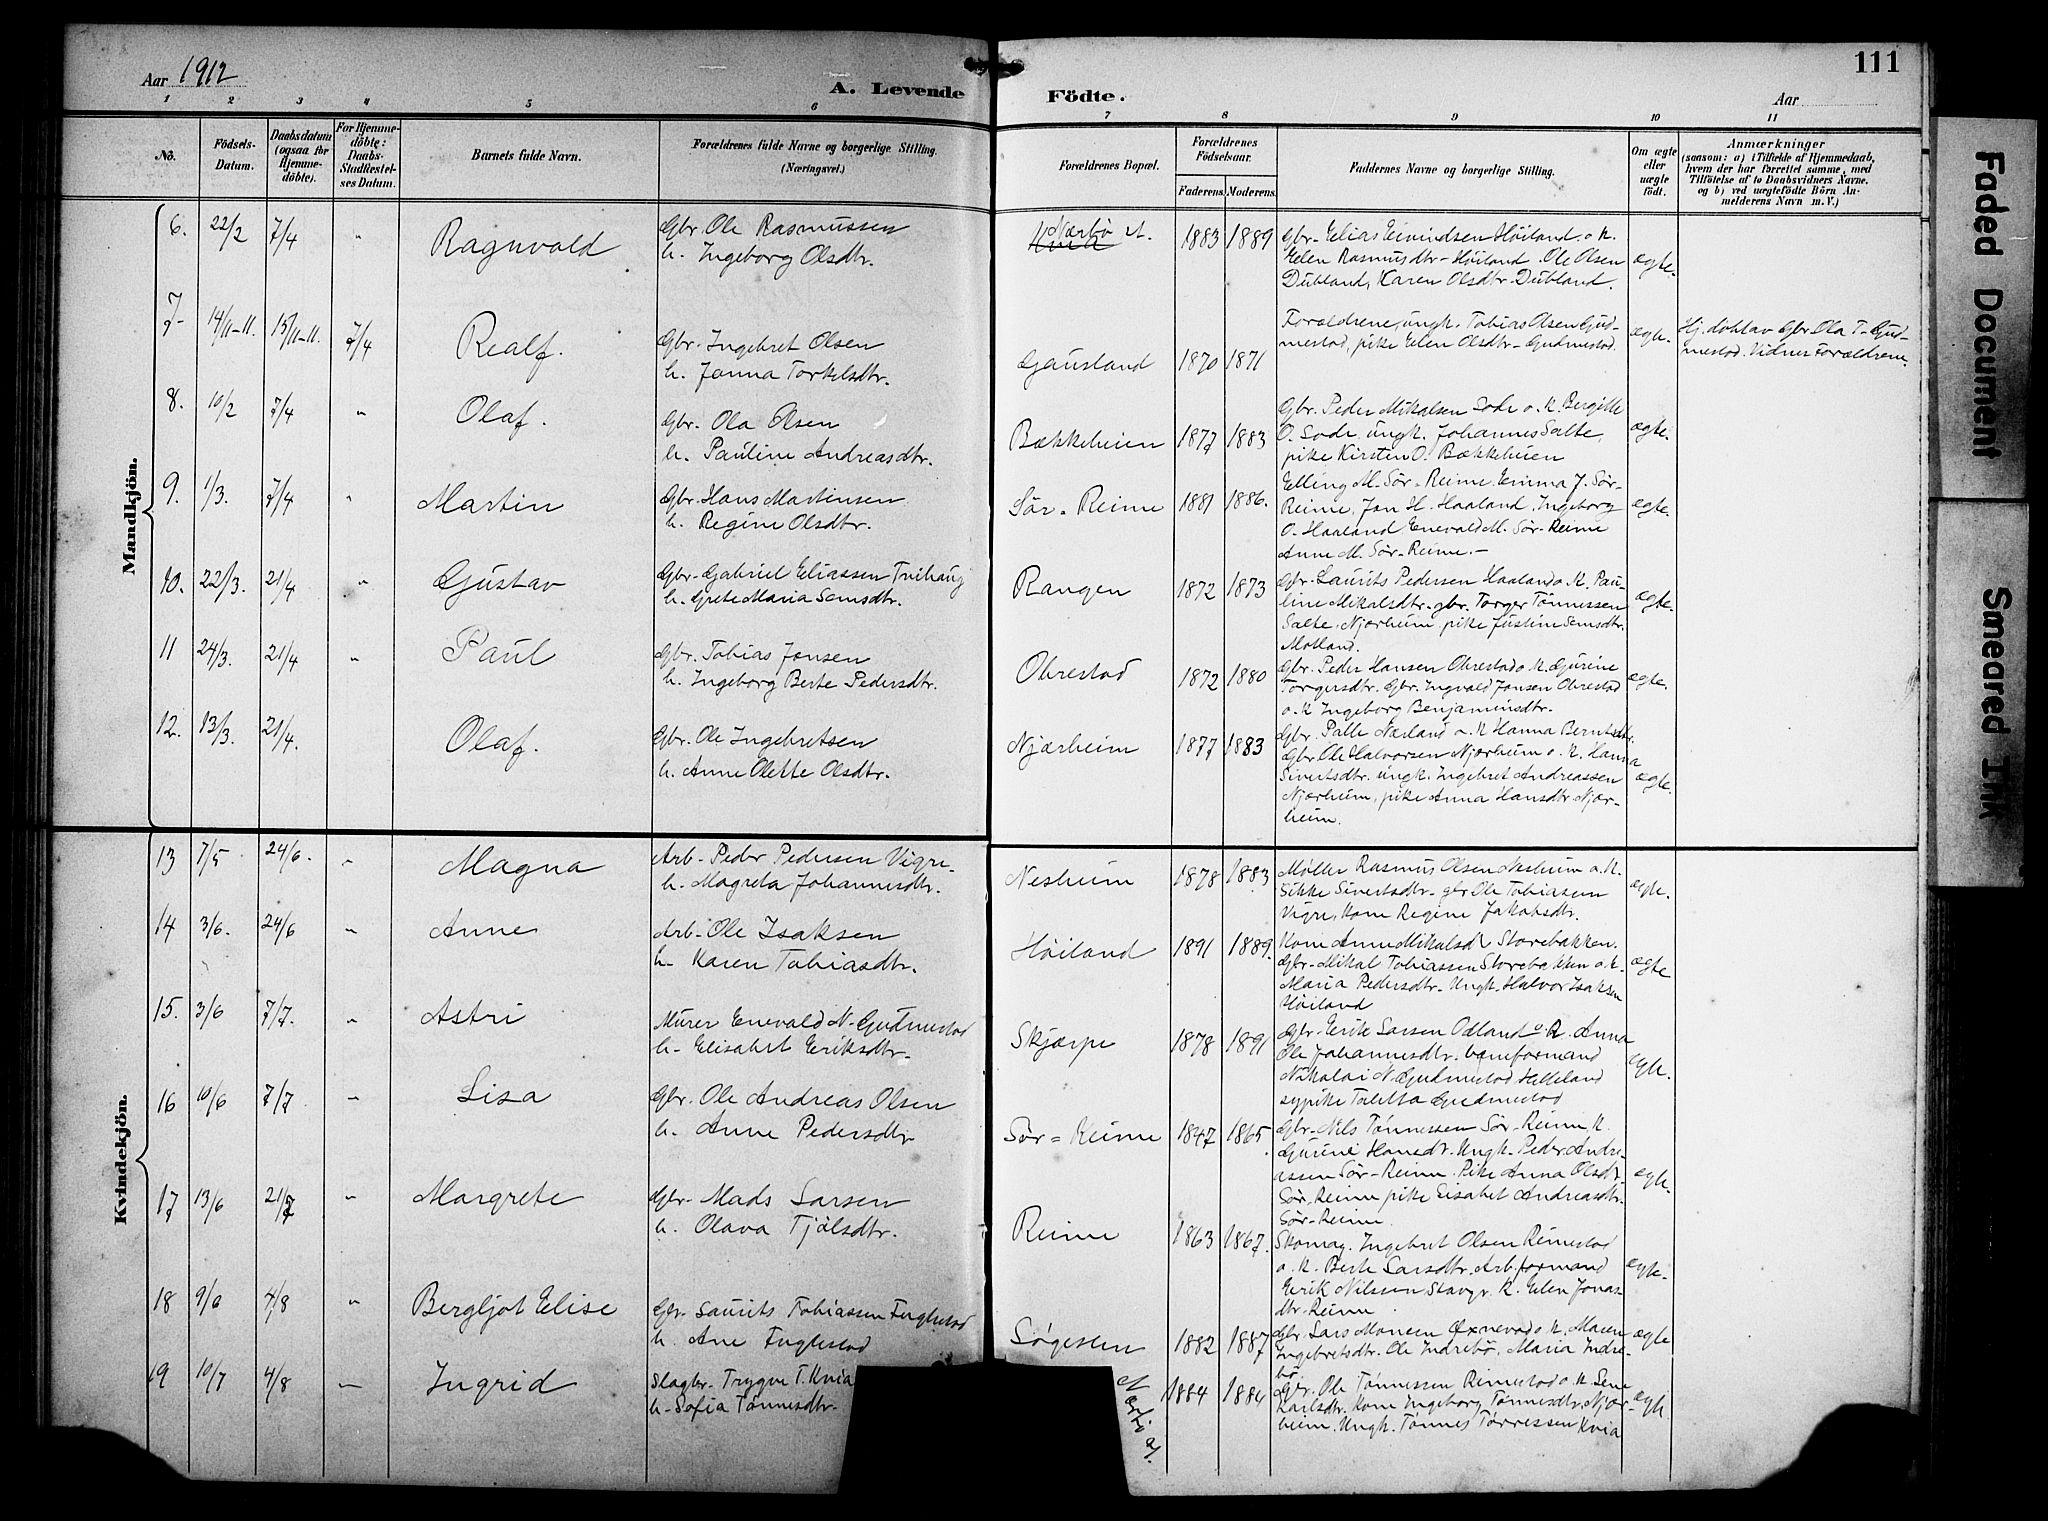 Aar 1912
A. Levende Födte.
111
Aar
1 2 3 4 5 6 7 8 9 10 11
No. Födsels-Datum. Daabsdatum (ogsaa for Hjemme-döbte). For Hjemme-döbte: Daabs-Stadfæstel-ses Datum. Barnets fulde Navn. Forældrenes fulde Navne og borgerlige Stilling. (Næringsvei.) Forældrenes Bopæl. Forældrenes Födselsaar. Faderens. Moderens. Faddernes Navne og borgerlige Stilling. Om ægte eller uægte födt. Anmærkninger (saasom: a) i Tilfælde af Hjemmedaab, hvem der har forrettet samme, med Tilföielse af to Daabsvidners Navne, og b) ved uægtefödte Börn An-melderens Navn m. V.)
Mandkjön.
6. 22/2 7/4 " Ragnvald
Gbr. Ole Rasmussen
h. Ingeborg Olsdtr.
Nærbö st. 1883 1889
Gbr. Elias Eivindsen Höiland o. K.
Elen Rasmusdtr. Höiland. Ole Olsen
Dubland, Karen Olsdtr. Dubland.
ægte.
7. 14/11-11. 15/11-11. 7/4 Realf.
Gbr. Ingebret Olsen
h. Janna Torkelsdtr.
Gausland 1870 1871
Forældrene, ungk. Tobias Olsen Gud-
mestad, pike Elen Olsdtr. Gudmestad.
ægte.
Hj. döbt av Gbr. Ola T. Gud-
mestad. Vidner Forældrene.
8. 10/2 7/4 " Olaf.
Gbr. Ola Olsen
h. Pauline Andreasdtr.
Bækkeheien 1877 1883
Gbr. Peder Mikalsen Lode o. K. Bergitte
O. Lode, ungk. Johannes Salte,
pike Kirsten O. Bækkeheien
ægte.
9. 1/3. 7/4 " Martin
Gbr. Hans Martinsen
h. Regine Olsdtr.
Sör-Reime 1881 1886.
Elling M. Sör-Reime. Emma J. Sör-
Reime, Jan H. Haaland, Ingeborg
O. Haaland. Enevald M. Sör-Reime
Anne M. Sör-Reime.-
ægte.
10. 22/3. 21/4 " Gustav
Gbr. Gabriel Eliassen Tvihaug
h. Grete Maria Semsdtr.
Rangen 1872 1873
Gbr. Laurits Pedersen Haaland o. K. Pau-
line Mikalsdtr. gbr. Torger Tönnessen
Salte, Njærheim, pike Justine Semsdtr.
Motland.
ægte.
11 24/3. 21/4 " Paul
Gbr. Tobias Jansen
h. Ingeborg Berte Pedersdtr.
Obrestad 1872 1880
Gbr. Peder Hansen Obrestad o. K. Gurine
Torgersdtr. Gbr. Ingvald Jansen Obrestad
o. K Ingeborg Benjaminsdtr.
ægte.
12. 13/3. 21/4. Olaf.
Gbr. Ole Ingebretsen
h. Anne Olette Olsdtr.
Njærheim 1877 1883
Gbr. Palle Nærland o. K Hanna Berntsdtr.
Gbr Ole Halvorsen Njærheim o. K. Hanna
Sivertsdtr. ungk. Ingebret Andreassen
Njærheim, pike Anna Hansdtr Njær-
heim.
ægte.
Kvindekjön.
13 7/5 24/6. " Magna
Arb. Peder Pedersen Vigre
h. Magreta Johannesdtr.
Nesheim 1878 1883
Möller Rasmus Olsen Nesheim o. K.
Sikke Sivertsdtr. gbr Ole Tobiassen
Vigre, Kone Regine Jakobsdtr.
ægte.
14 3/6. 24/6 " Anne
Arb. Ole Isaksen
h. Karen Tobiasdtr.
Höiland 1891 1889.
Kone Anne Mikalsd. Storebakken.
Gbr. Mikal Tobiassen Storebakken o. K.
Maria Pedersdtr. Ungk. Halvor Isaksen
Höiland
ægte
15. 3/6 7/7. " Astri
Murer Enevald N. Gudmestad
h. Elisabet Eriksdtr.
Skjærpe 1878 1891
Gbr. Erik Larsen Odland o. K. Anna
Ole Johannesdtr. baneformand
Nikolai N. Gudmestad Helleland
sypike Taletta Gudmestad
ægte.
16 10/6 7/7 " Lisa
Gbr. Ole Andreas Olsen
h. Anne Pedersdtr
Sör=Reime 1847 1865
Gbr. Nils Tönnessen Sör-Reime K.
Gurine Hansdtr. Ungk. Peder Andre-
assen Sör-Reime. Pike Anna Olsdtr
Sör-Reime pike Lisabet Andreasdtr.
Sör-Reime.
ægte.
17 13/6 21/7 " Margrete
Gbr. Mads Larsen
h. Olava Tjölsdtr.
Reime 1863 1867.
Skomag. Ingebret Olsen Reimestad
o. K. Berte Larsdtr. Arb.formand
Erik Nilssen Stavgr. K. Elen Jonas-
dtr. Reime.
ægte.
18 9/6 4/8 " Bergljot Elise
Gbr. Laurits Tobiassen Fuglestad
h. Ane Fuglestad
Lögesten 1882 1887
Gbr Lars Monsen Oxnevad o. K. Maren
Ingebretsdtr. Ole Indrebö, Maria Indre-
bö
ægte
19 10/7 4/8 — Ingrid
Slagter Trygve T. Kvia
h. Sofia Tönnesdtr.
Nærbö st. 1884 1884
Gbr. Ole Tönnessen Reimestad o. K Lene
Karlsdtr. Kone Ingeborg Tönnesdtr. Njær-
heim. Ungk. Tönnes Törressen Kvia
ægte
Faded Document
Smeared Ink